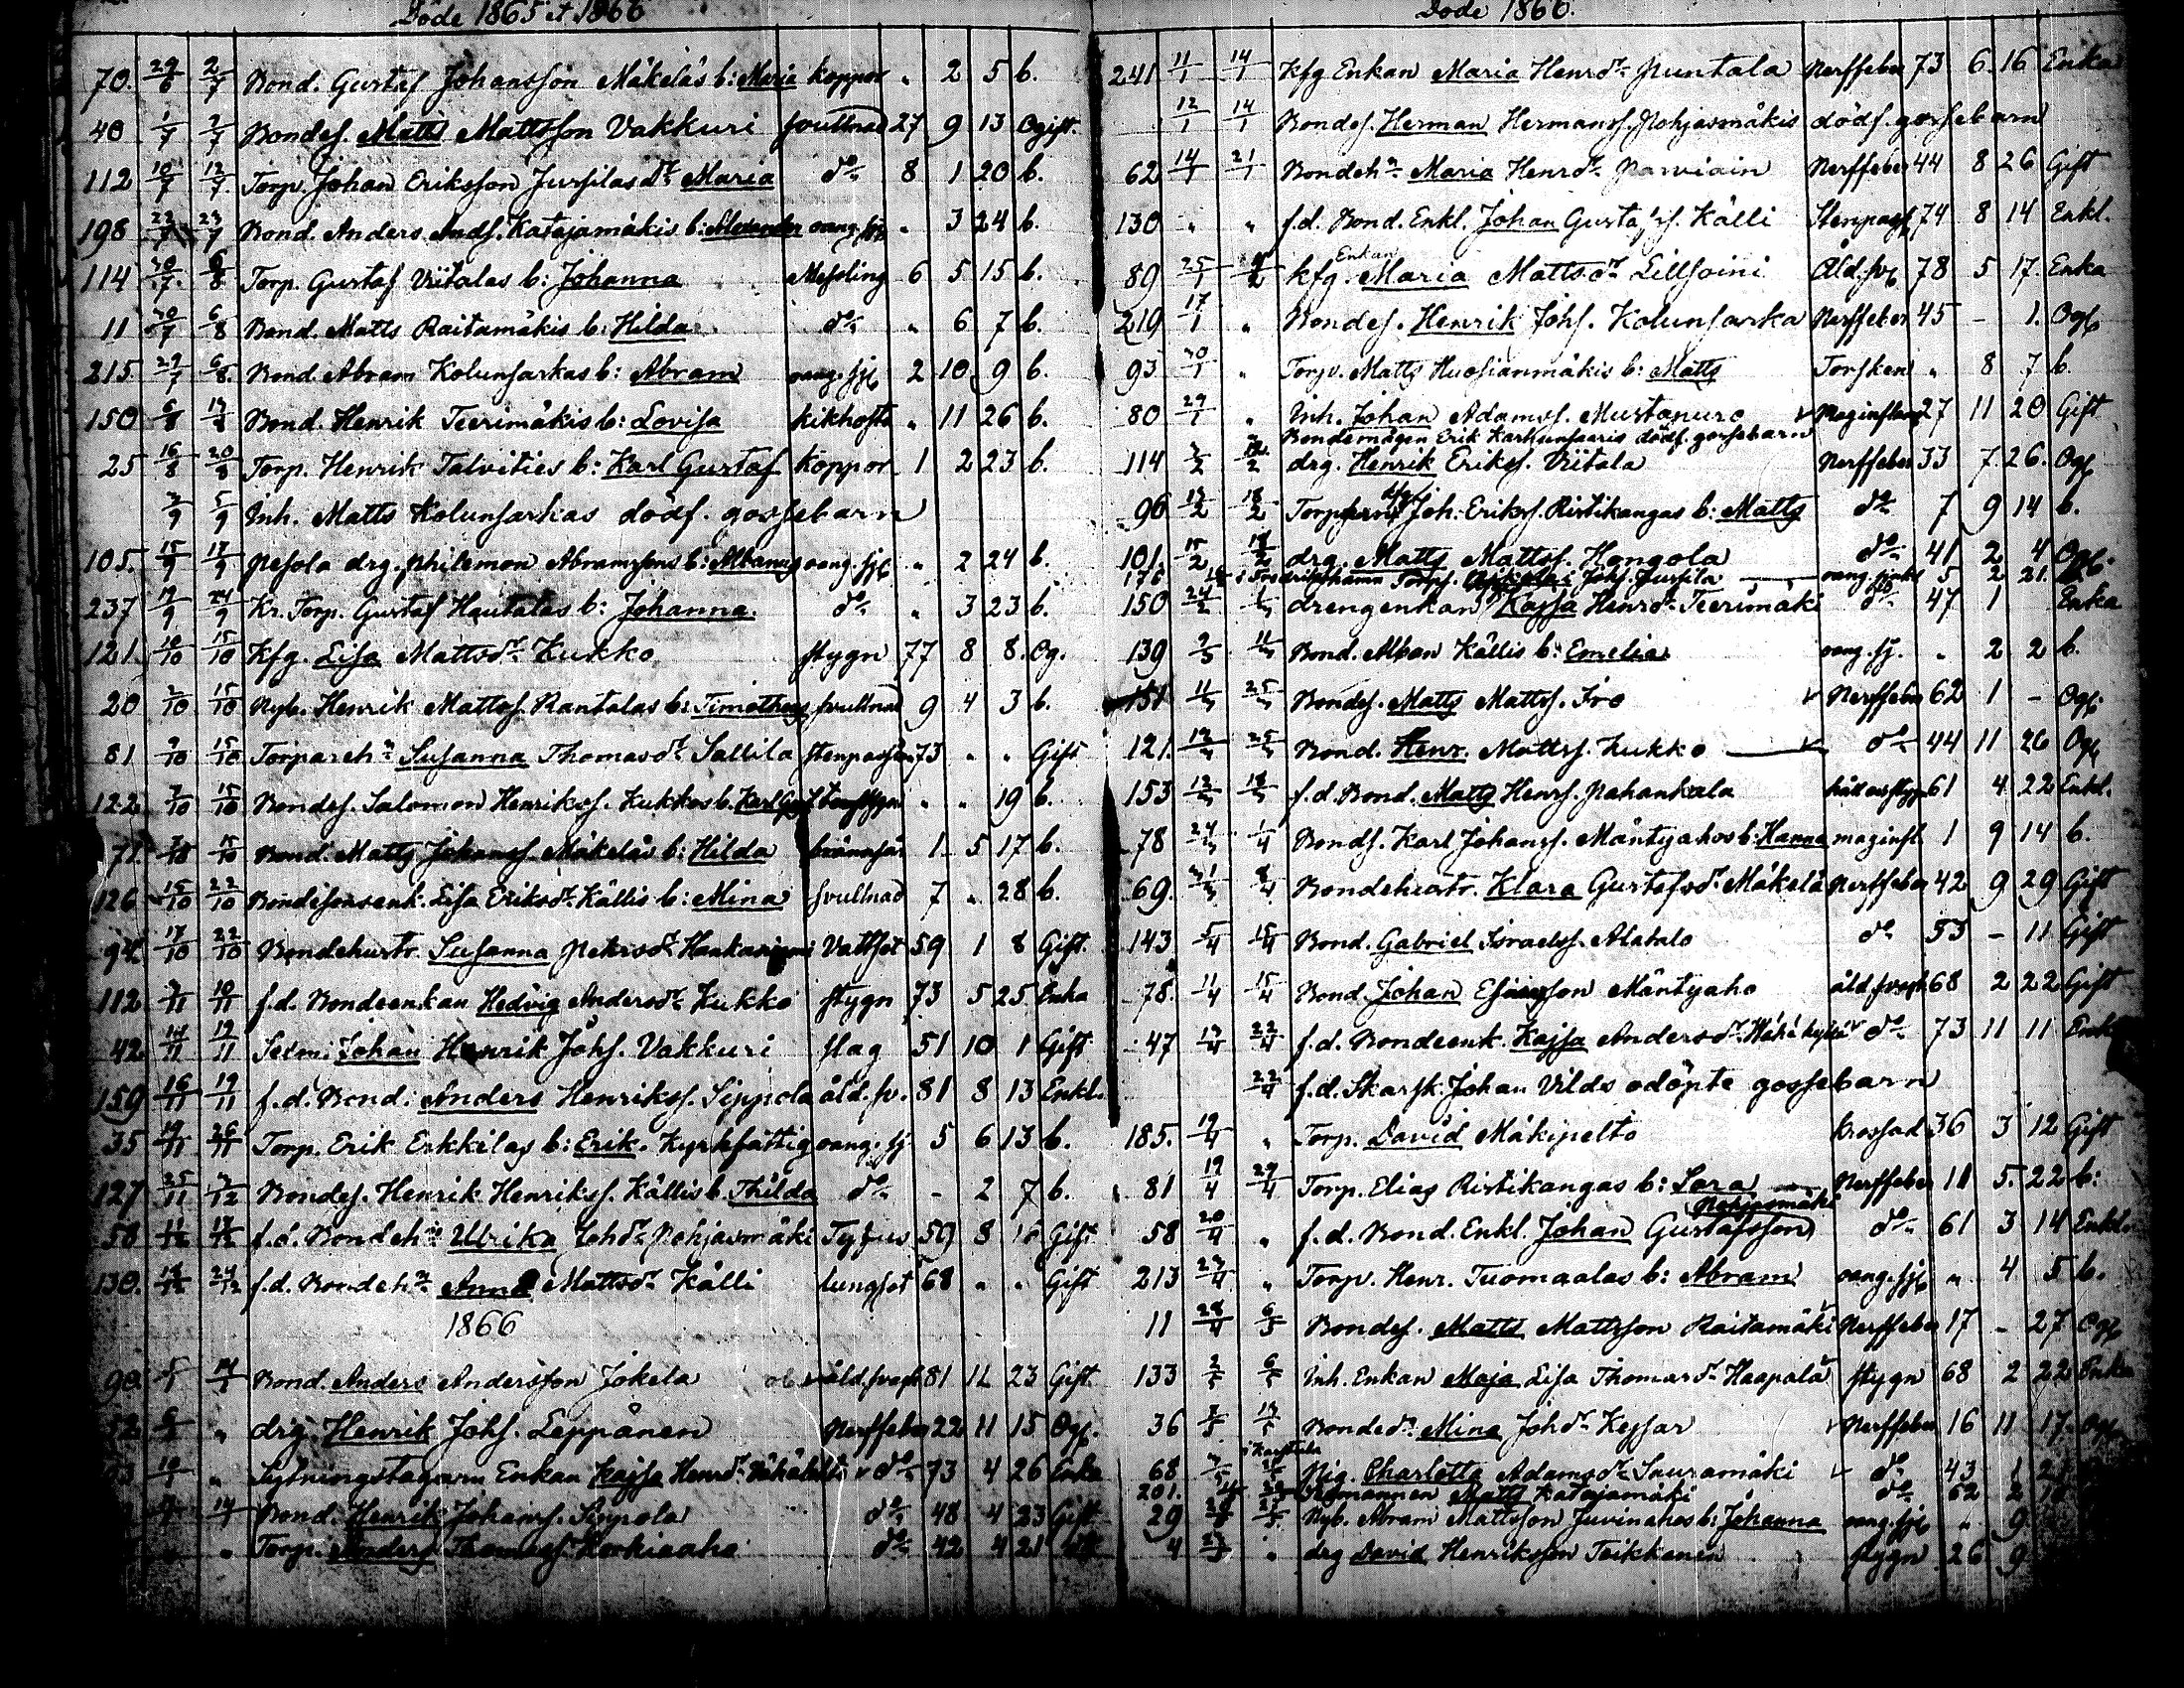 Döde 1865 et 1866
70. 29/6 2/7 Bond. Gustaf Johansson Mäkeläs b: Maria koppor " 2 5 b.
40 1/7 2/7 Bondes. Matts Mattsson Vakkuri svullnad 27 9 13 Ogift.
112 10/7 12/7. Torp. Johan Eriksson Jussilas dr Maria do 8 1 20 b.
198 22/7 23/7 Bond. Anders Ands. Katajamäkis b: Alexander oang. sjk " 3 24 b.
114 30/7 6/8 Torp. Gustaf Viitalas b: Johanna Messling 6 5 15 b.
11 30/7 6/8 Bond. Matts Raitamäkis b: Hilda do " 6 7 b.
215 29/7 6/8. Bond. Abram Kolunsarkas b: Abram oang. sjk 2 10 9 b.
150 6/8 13/8 Bond. Henrik Teerimäkis b: Lovisa kikhosta " 11 26 b.
25 16/8 20/8 Torp. Henrik Talvities b: Karl Gustaf koppor 1 2 23 b.
2/9 5/9 Inh. Matts Kolunsarkas dödf. gossebarn
105. 15/9 17/9 Pesola drg. Philemon Abramssons b: Albanus oang. sjk " 2 24 b.
237 17/9 24/9 Kr. Torp. Gustaf Hautalas b: Johanna. do " 3 23 b.
121. 10/10 15/10 Kfg. Lisa Mattsdr Kukko stygn 77 8 8. Og.
20 2/10 15/10 Nyb. Henrik Mattss. Rantalas b: Timotheus svullnad 9 4 3 b.
81 9/10 15/10 Torpareh. Susanna Thomasdr Sallila stenpassion 73 " " Gift
122 7/10 15/10 Bondes. Salomon Henrikss. Kukkos b. Karl 19 b.
71. 15/10 Bond. Matts Johanss. Mäkeläs b: Hilda brännsår 1 5 17 b.
126 15/10 22/10 Bondesonsenk. Lisa Eriksdr Källis b: Mina svullnad 7 " 28 b.
94. 17/10 22/10 Bondehustr. Susanna Petersdr Vattsot 59 1 8 Gift.
112 7/11 10/11 f.d. Bondeenkan Hedvig Andersdr Kukko stygn 73 5 25 Enka
42 14/11 19/11 Sexm. Johan Henrik Johs. Vakkuri slag 51 10 1 Gift
159 16/11 19/11 f.d. Bond. Anders Henrikss. Seppola åld. sv. 81 8 13 Enkl.
35 19/11 26/11 Torp. Erik Erkkilas b: Erik. Kyrkfattig oang. sj 5 6 13 b.
127 25/11 3/12 Bondes. Henrik Henrikss. Källis b. Thilda do - 2 7 b.
58 f.d. Bondeh. Ulrika Johdr Pohjasmäki Tyfus 59 8 16 Gift
130. 24/12 f.d. Bondeh. Anna Mattsdr Källi lungsot 68 " " Gift
1866
90. 5/1 14/1 Bond. Anders Andersson Jokela åld. svagh 81 11 23 Gift.
" drg. Henrik Johs. Leppänen Nerffeber 22 11 15 Ogf.
" Sytningstagarn Enkan Kajsa Henrdr do 73 4 26 Enka
14 Bond. Henrik Johanss. Seppola do 48 4 23 Gift
" Torp. Anders Thomass. Horkiaaho do 42 4 21
Döde 1866.
241 11/1 14/1 Kfg Enkan Maria Henrdr Puntala Nerffeber 73 6 16 Enka
12/1 14/1 Bondes. Herman Hermanss. Pohjasmäkis dödf. gossebarn
62 14/1 21/1 Bondeh. Maria Henrdr Parviain Nerffeber 44 8 26 Gift
130 " " f.d. Bond. Enkl. Johan Gustafss. Källi Stenpass 74 8 14 Enkl.
89 25/1 4/2 kfg. Enkan Maria Mattsdr Lillsoini Åld. svg 78 5 17. Enka
219 17/1 " Bondes. Henrik Johs. Kolunsarka Nerffeber 45 - 1. Ogf
93 30/1 " Torp. Matts Huosianmäkis b: Matts Torsken " 8 7 b.
80 29/1 " Inh. Johan Adamss. Mustapuro Maginflam 27 11 20 Gift
Bondemågen Erik Karhunsaaris dödf. gossebarn
114 3/2 drg. Henrik Erikss. Viitala Nerffeber 33 7. 26. Ogf
96 13/2 18/2 Torp Joh: Erikss. Ristikangas b: Matts do 7 9 14 b.
101. 15/2 18/2 drg. Matts Mattss. Hongola do 41 2 4 Ogf.
176 i Fredrikshamn Torps. Johs. Jussila oang. sjukd 5 2 21.
150 24/2 drengenkan Kajsa Henrdr Teerimäki do 47 1 Enka
139 2/3 11/3 Bond. Alban Källis b: Emelia oang. sj. " 2 2 b.
151 11/3 25/3 Bondes. Matts Mattss. Iro Nerffeber 62 1 - Ogf.
121. 12/3 25/3 Bond. Henr. Mattss. Kukko do 44 11 26 Ogf
153 12/3 18/3 f.d. Bond. Matts Henrs. Pahankala håll o. stygn 61 4 22 Enkl.
78 24/3 1/4 Bonds. Karl Johanss. Mäntyahos b: Hanna maginfl. 1 9 14 b.
69. 31/3 8/4 Bondehustr. Klara Gustafsdr Mäkelä Nerffeber 42 9 29 Gift
143 5/4 15/4 Bond. Gabriel Israelss. Alatalo do 53 - 11 Gift
78. 11/4 15/4 Bond. Johan Esaiasson Mäntyaho åld. svagh 68 2 22 Gift
47 13/4 22/4 f.d. Bondeenk. Kajsa Andersdr do 73 11 11 Enka
22/4 f.d. Skarfr. Johan Vilds odöpte gossebarn
185. 19/4 " Torp. David Mäkipelto krossad 36 3 12 Gift
81 19/4 29/4 Torp. Elias Ristikangas b: Sara Nerffeber 11 5. 22 b:
58 20/4 " f.d. Bond. Enkl. Johan Gustafsson Pohjasmäki do 61 3 14 Enkl.
213 23/4 " Torp. Henr. Tuomaalas b: Abram oang. sjk " 4 5 b.
11 28/4 6/5 Bondes. Matts Mattsson Raitamäki Nerffeber 17 - 27 Ogf
133 2/5 6/5 Inh. Enkan Maja Lisa Thomasdr Haapala stygn 68 2 22 Enka
36 7/5 13/5 Bondedr Mina Johdr Kessar Nerffeber 16 11 17.
68 Pig. Charlotta Adamsdr Sauramäki do 43 1
201. Matts Katajamäki do 62 2
29 Nyb. Abram Mattsson Juvinahos b: Johanna oang. sjk " 9
4 " drg David Henriksson Teikkanen stygn 26 9